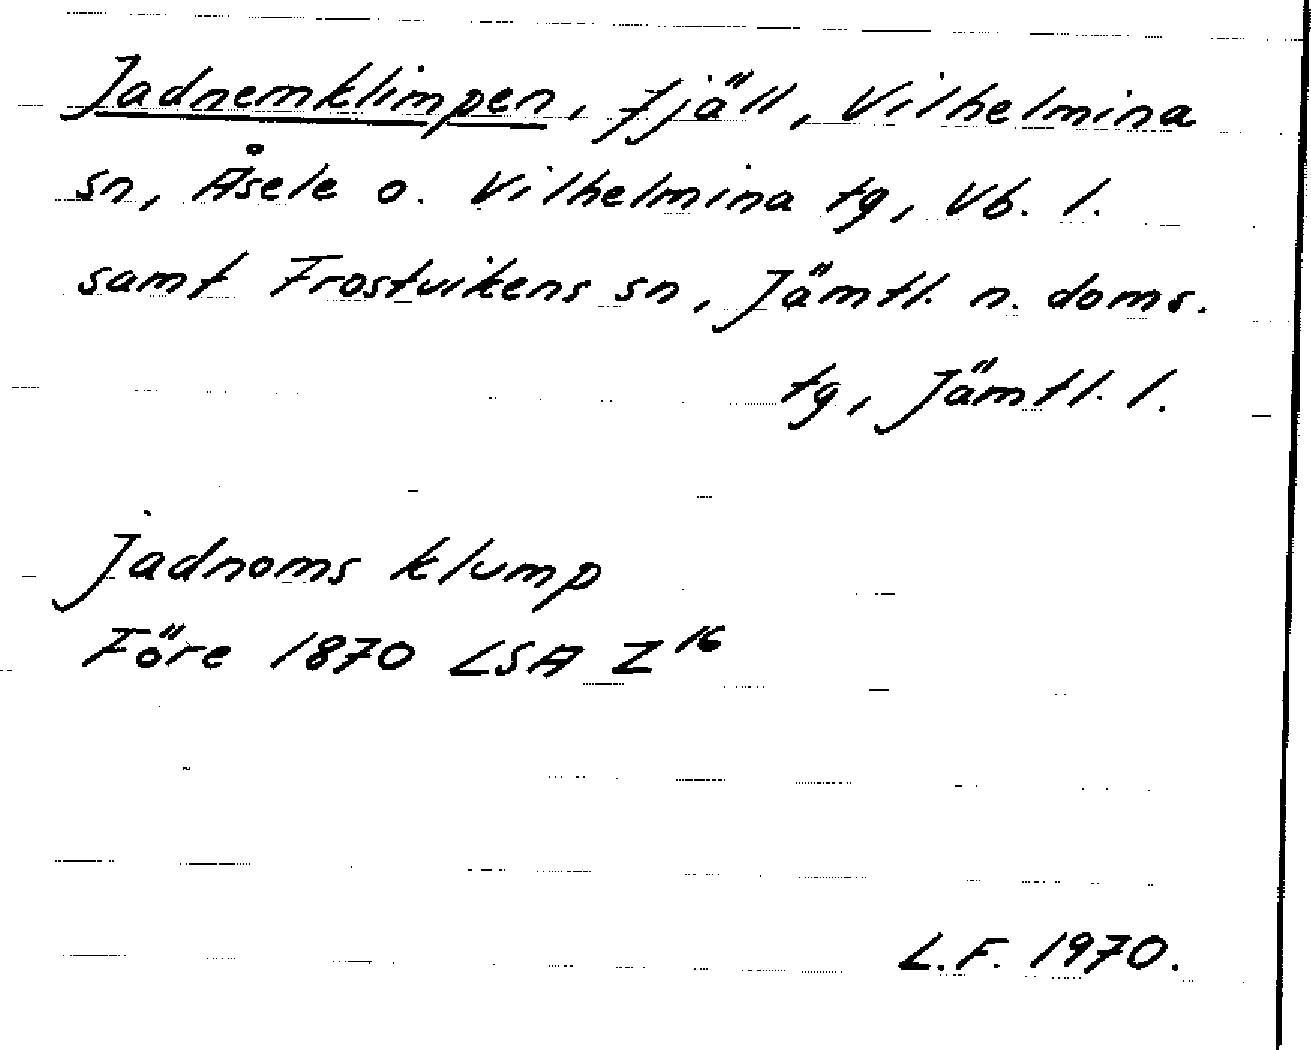 Jadnemklimpen, fjäll, Vilhelmina
sn, Åsele o. Vilhelmina tg, Vb. l.
samt Frostvikens sn, Jämtl. n. doms.
tg, Jämtl. l.
Jadnoms klump
Före 1870 LSA Z¹⁶
L.F. 1970.